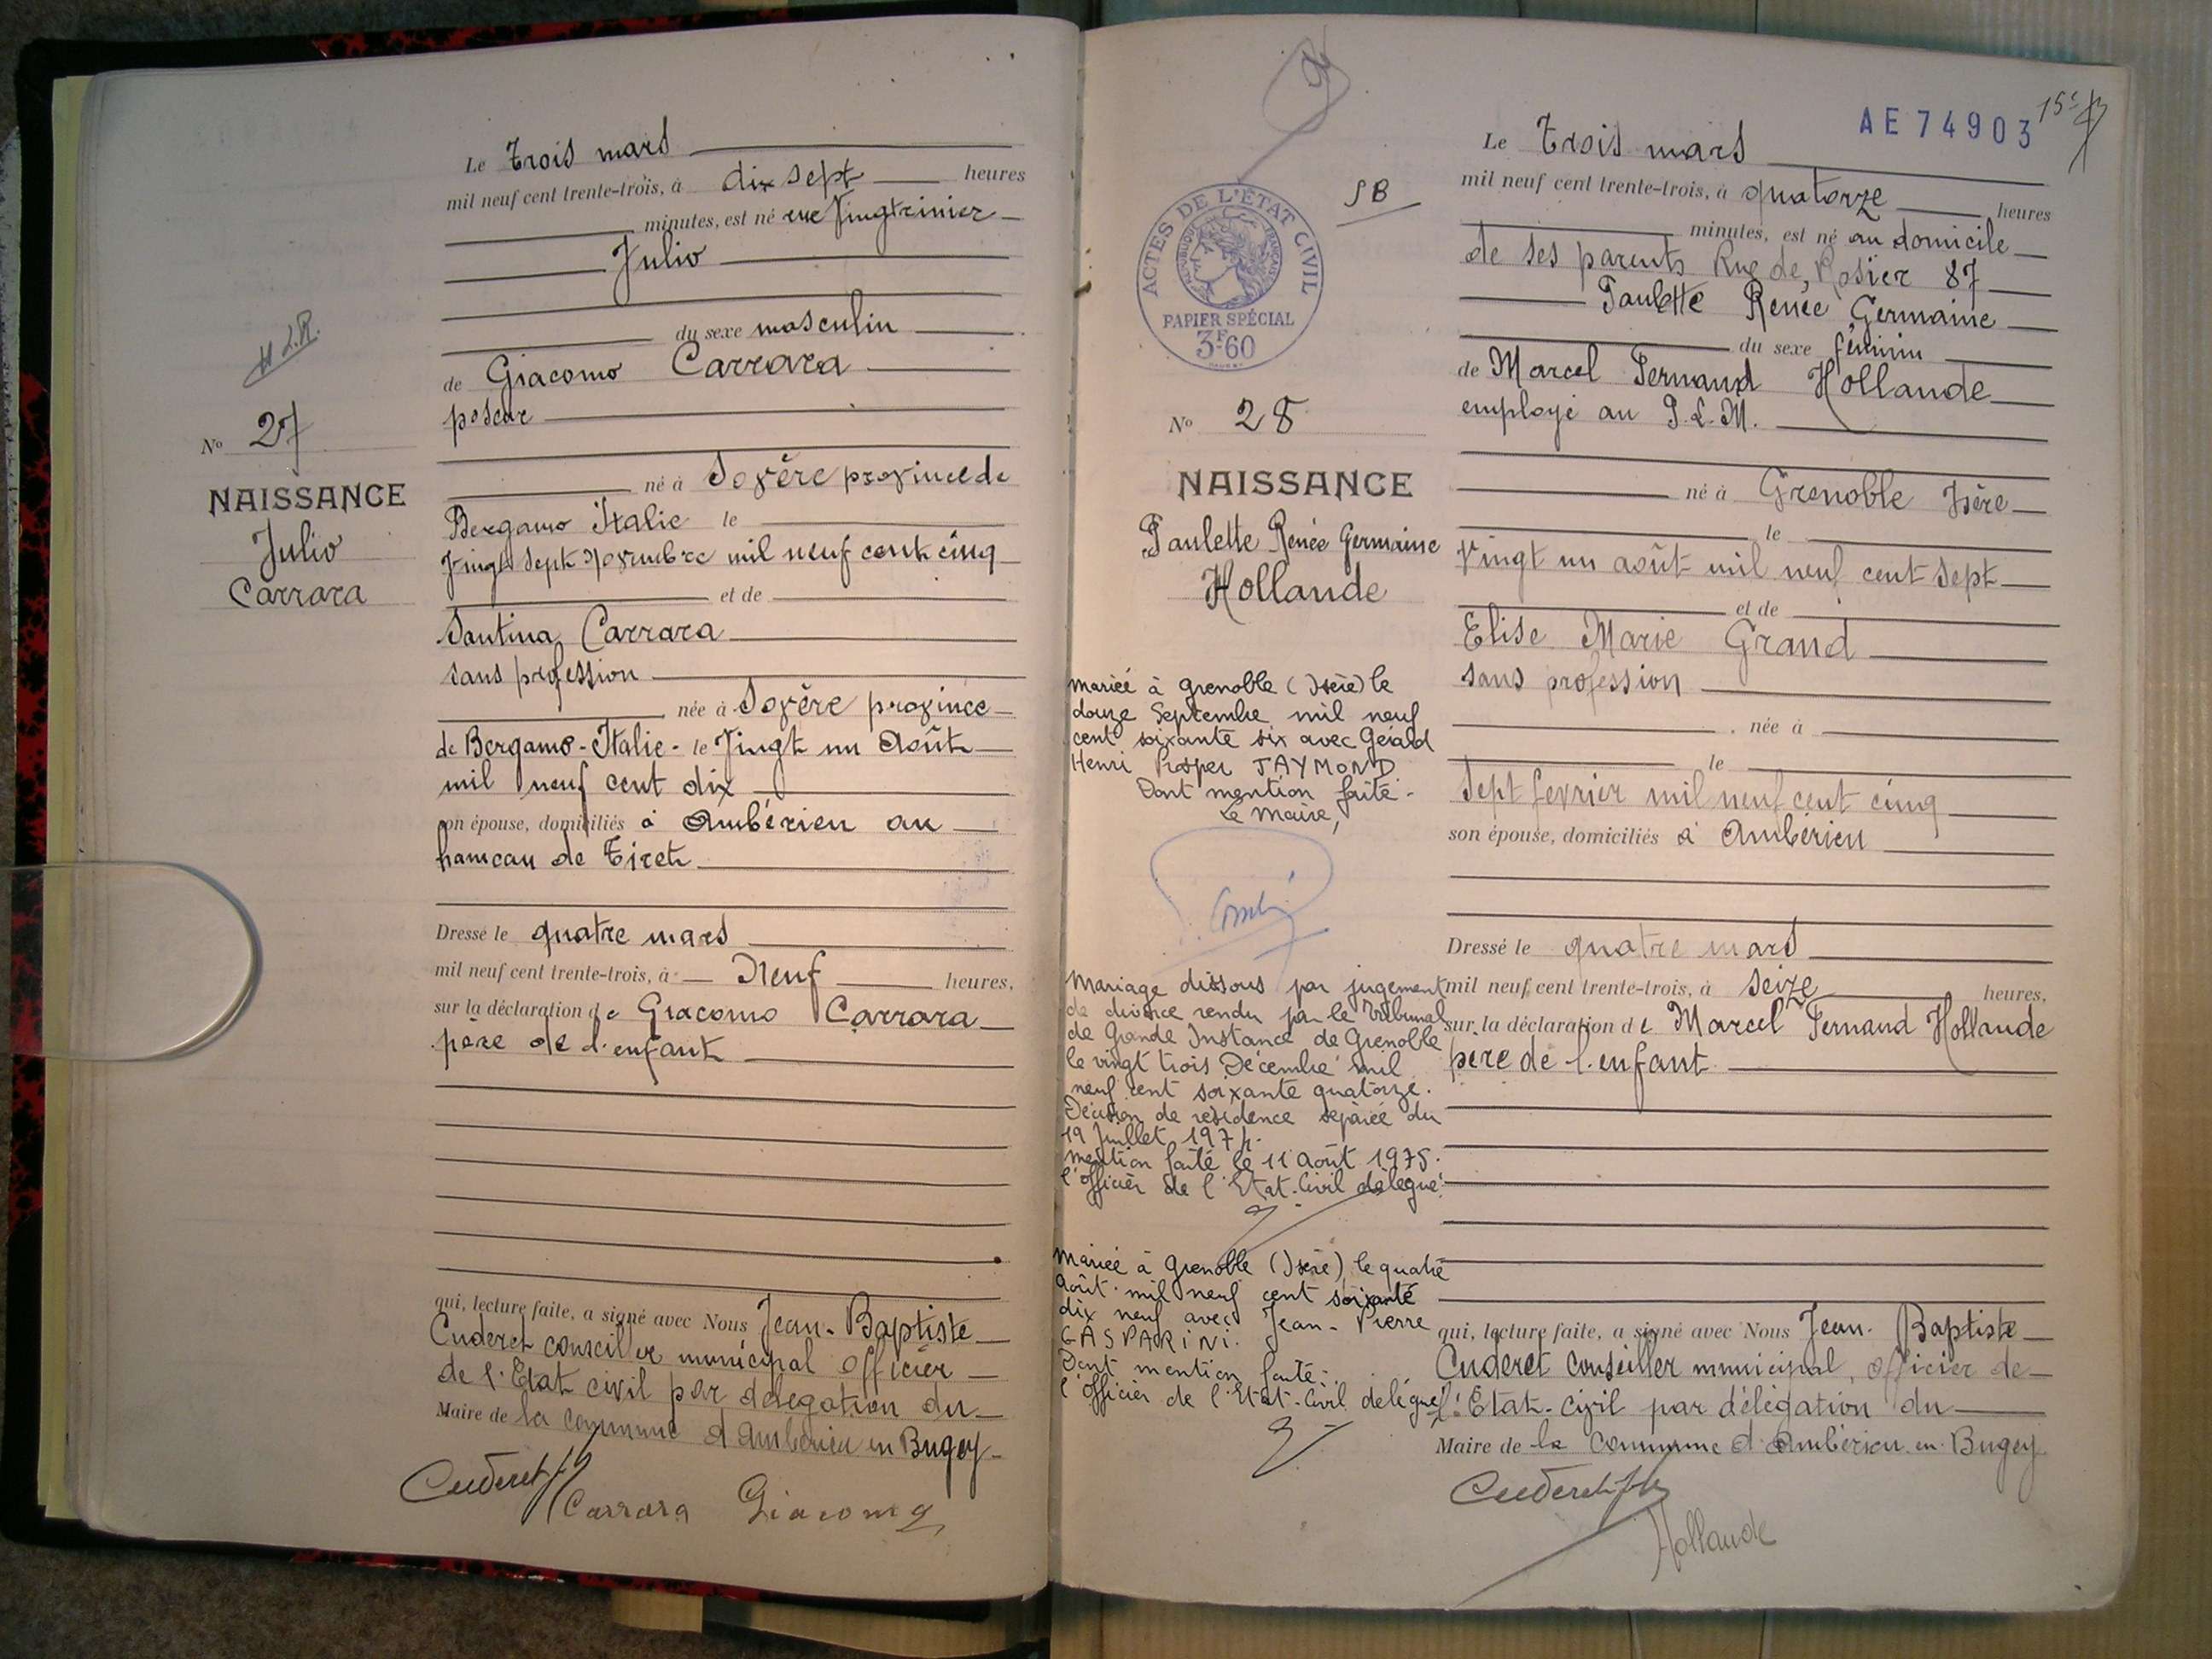 N° 27
NAISSANCE
Julio
Carrara
Le Trois mars
mil neuf cent trente-trois, à dix sept heures
minutes, est né rue Vingtrinier
Julio
du sexe masculin
de Giacomo Carrara
poseur
né à Sovère province de
Bergamo Italie le
Vingt sept Novembre mil neuf cent cinq
et de
Santina Carrara
sans profession
née à Sovère province
de Bergamo - Italie - le Vingt un Août
mil neuf cent dix
son épouse, domiciliés à Ambérieu au
hameau de Tiret
Dressé le quatre mars
mil neuf cent trente-trois, à Neuf heures,
sur la déclaration de Giacomo Carrara
père de l'enfant
qui, lecture faite, a signé avec Nous Jean-Baptiste
Cuderet conseiller municipal officier
de l'Etat civil par délégation du
Maire de la commune d'Ambérieu en Bugey
Cuderet
Carrara Giacomo
ACTES DE L'ÉTAT CIVIL
RÉPUBLIQUE FRANÇAISE
PAPIER SPÉCIAL
3F60
SB
N° 28
NAISSANCE
Paulette Renée Germaine
Hollande
mariée à Grenoble (Isère) le
douze Septembre mil neuf
cent soixante six avec Gérard
Henri Prosper JAYMOND
Dont mention faite.
Le Maire,
Mariage dissous par jugement
de divorce rendu par le Tribunal
de Grande Instance de Grenoble
le vingt trois Décembre mil
neuf cent soixante quatorze.
Décision de résidence séparée du
19 Juillet 1974.
mention faite le 11 août 1975.
l'officier de l'Etat-Civil délégué.
Mariée à Grenoble (Isère) le quatre
août mil neuf cent soixante
dix neuf avec Jean-Pierre
GASPARINI.
Dont mention faite.
l'officier de l'Etat-Civil délégué
AE 74903
Le Trois mars
mil neuf cent trente-trois, à quatorze heures
minutes, est né au domicile
de ses parents Rue de Rosier 87
Paulette Renée Germaine
du sexe féminin
de Marcel Fernand Hollande
employé au P.L.M.
né à Grenoble Isère
le
Vingt un août mil neuf cent sept
et de
Elise Marie Grand
sans profession
, née à
le
Sept février mil neuf cent cinq
son épouse, domiciliés à Ambérieu
Dressé le quatre mars
mil neuf cent trente-trois, à Seize heures,
sur la déclaration de Marcel Fernand Hollande
père de l'enfant
qui, lecture faite, a signé avec Nous Jean-Baptiste
Cuderet Conseiller municipal, officier de
l'Etat-civil par délégation du
Maire de la Commune d'Ambérieu en Bugey
Cuderet
Hollande